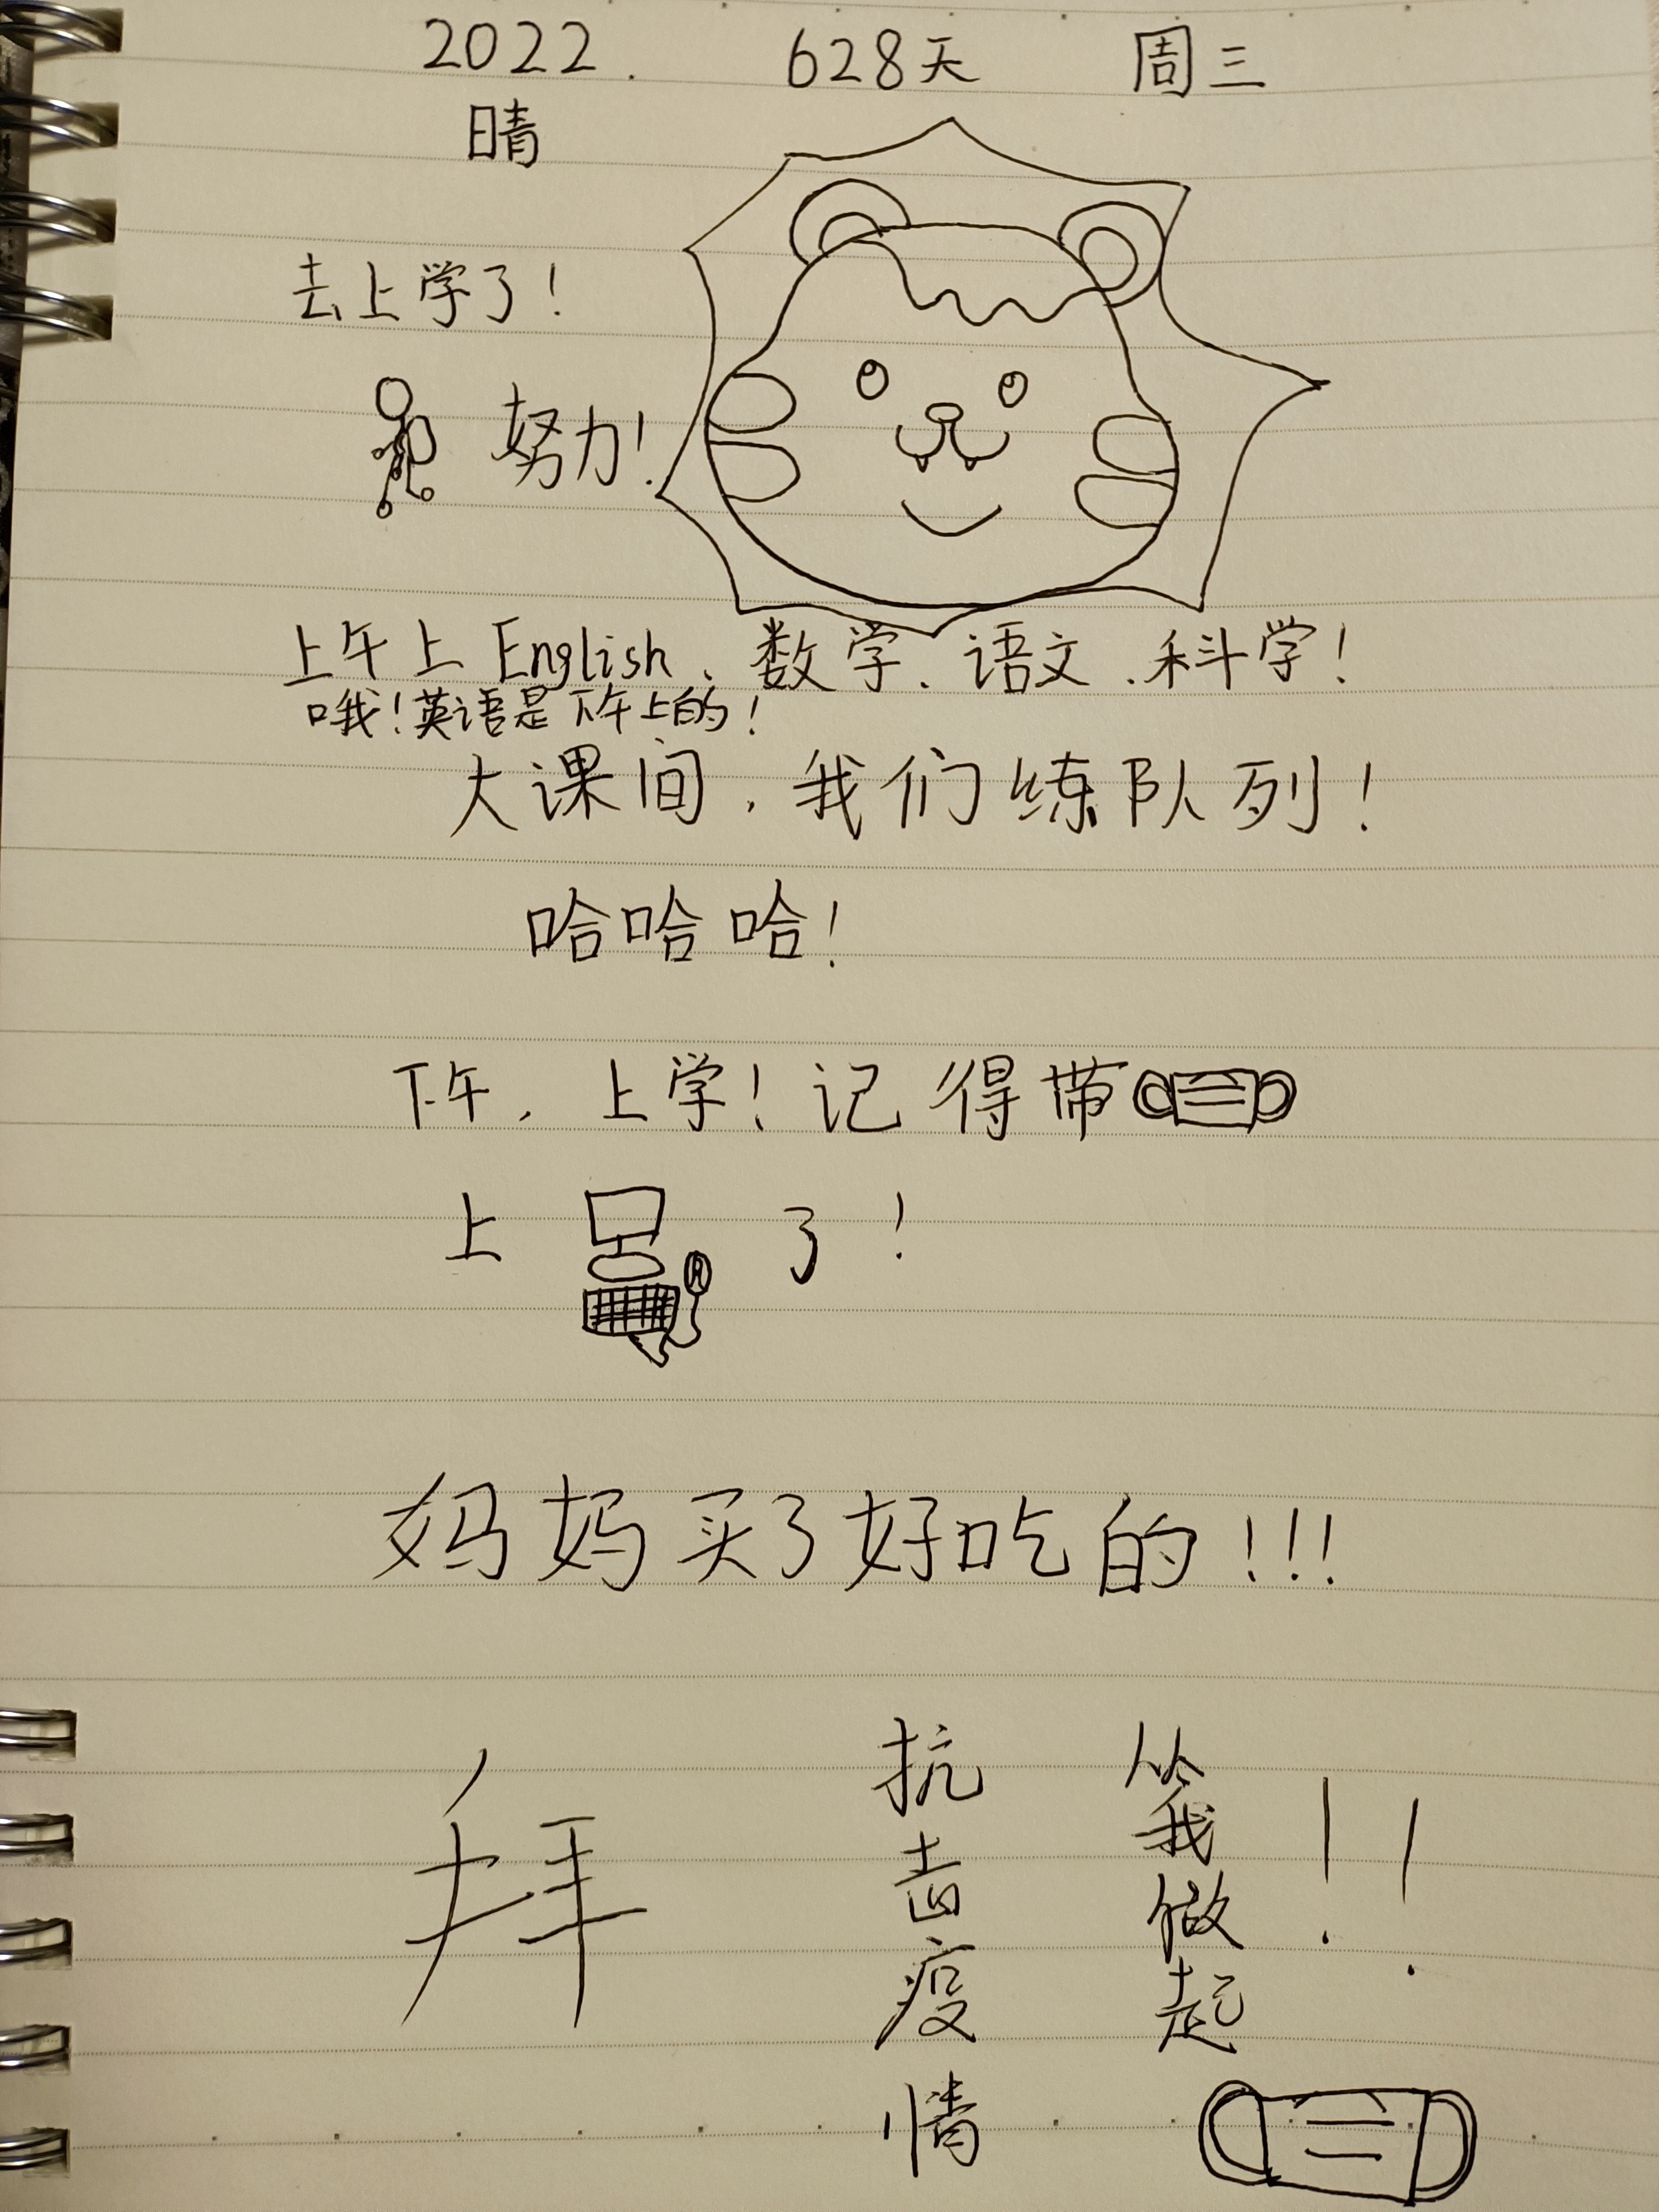 2022. 628天 周三
晴
去上学了！
努力！
上午上English、数学、语文、科学！
哦！英语是下午上的！
大课间，我们练队列！
哈哈哈！
下午，上学！记得带
上 了！
妈妈买了好吃的！！！
拜
抗击疫情
从我做起！！